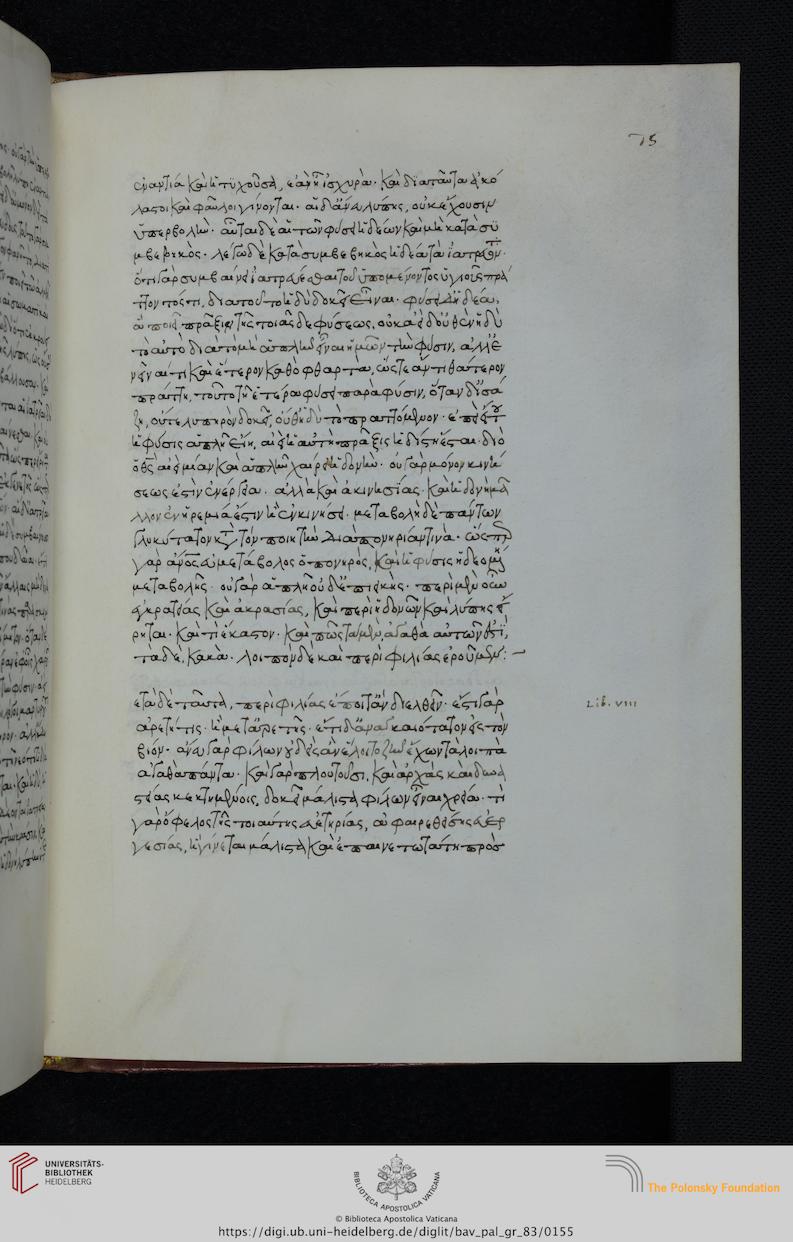 75
ἐναντία καὶ ἡ τυχοῦσα, ἐὰν ᾖ ἰσχυρά. καὶ διὰ ταῦτα ἀκό
λαστοι καὶ φαῦλοι γίνονται. αἱ δ' ἄνευ λύπης, οὐκ ἔχουσιν
ὑπερβολήν. αὗται δὲ αἱ τῶν φύσει ἡδέων καὶ μὴ κατὰ συ
μβεβηκός. λέγω δὲ κατὰ συμβεβηκὸς ἡδέα τὰ ἰατρεύοντα.
ὅτι γὰρ συμβαίνει ἰατρεύεσθαι τοῦ ὑπομένοντος ὑγιοῦς πρά
ττοντός τι, διὰ τοῦτο ἡδὺ δοκεῖ εἶναι. φύσει δ' ἡδέα,
ἃ ποιεῖ πρᾶξιν τῆς τοιᾶσδε φύσεως. οὐκ ἀεὶ δ' οὐθὲν ἡδὺ
τὸ αὐτὸ διὰ τὸ μὴ ἁπλῆν εἶναι ἡμῶν τὴν φύσιν, ἀλλ' ἐ
νεῖναί τι καὶ ἕτερον καθὸ φθαρτὰ, ὥστε ἄν τι θάτερον
πράττῃ, τοῦτο τῇ ἑτέρᾳ φύσει παρὰ φύσιν, ὅταν δ' ἰσά
ζῃ, οὔτε λυπηρὸν δοκεῖ, οὔθ' ἡδὺ τὸ πραττόμενον. ἐπεὶ εἴ του
ἡ φύσις ἁπλῆ εἴη, ἀεὶ ἡ αὐτὴ πρᾶξις ἡδίστη ἔσται. διὸ
ὁ θεὸς ἀεὶ μίαν καὶ ἁπλῆν χαίρει ἡδονήν. οὐ γὰρ μόνον κινή
σεώς ἐστιν ἐνέργεια. ἀλλὰ καὶ ἀκινησίας. καὶ ἡδονὴ μᾶ
λλον ἐν ἠρεμίᾳ ἐστὶν ἢ ἐν κινήσει. μεταβολὴ δὲ πάντων
γλυκύτατον κατὰ τὸν ποιητὴν διὰ πονηρίαν τινά. ὥσπερ
γὰρ ἄνθρωπος εὐμετάβολος ὁ πονηρός, καὶ ἡ φύσις ἡ δεομένη
μεταβολῆς. οὐ γὰρ ἁπλῆ οὐδ' ἐπιεικής. περὶ μὲν οὖν
ἐγκρατείας καὶ ἀκρασίας, καὶ περὶ ἡδονῶν καὶ λύπης εἴ
ρηται. καὶ τί ἕκαστον. καὶ πῶς τὰ μὲν ἀγαθὰ αὐτῶν ἐστί,
τὰ δὲ, κακά. λοιπὸν δὲ καὶ περὶ φιλίας ἐροῦμεν:
ετὰ δὲ ταῦτα, περὶ φιλίας ἕποιτ' ἂν διελθεῖν. ἔστι γὰρ
Lib. VIII
ἀρετή τις. ἢ μετ' ἀρετῆς. ἔτι δ' ἀναγκαιότατον εἰς τὸν
βίον. ἄνευ γὰρ φίλων οὐδεὶς ἂν ἕλοιτο ζῆν ἔχων τὰ λοιπὰ
ἀγαθὰ πάντα. καὶ γὰρ πλουτοῦσι, καὶ ἀρχὰς καὶ δυνα
στείας κεκτημένοις, δοκεῖ μάλιστα φίλων εἶναι χρεία. τί
γὰρ ὄφελος τῆς τοιαύτης εὐετηρίας, ἀφαιρεθείσης εὐερ
γεσίας, ἣ γίνεται μάλιστα καὶ ἐπαινετωτάτη πρὸς
UNIVERSITÄTS-
BIBLIOTHEK
HEIDELBERG
BIBLIOTHECA APOSTOLICA VATICANA
The Polonsky Foundation
© Biblioteca Apostolica Vaticana
https://digi.ub.uni-heidelberg.de/diglit/bav_pal_gr_83/0155